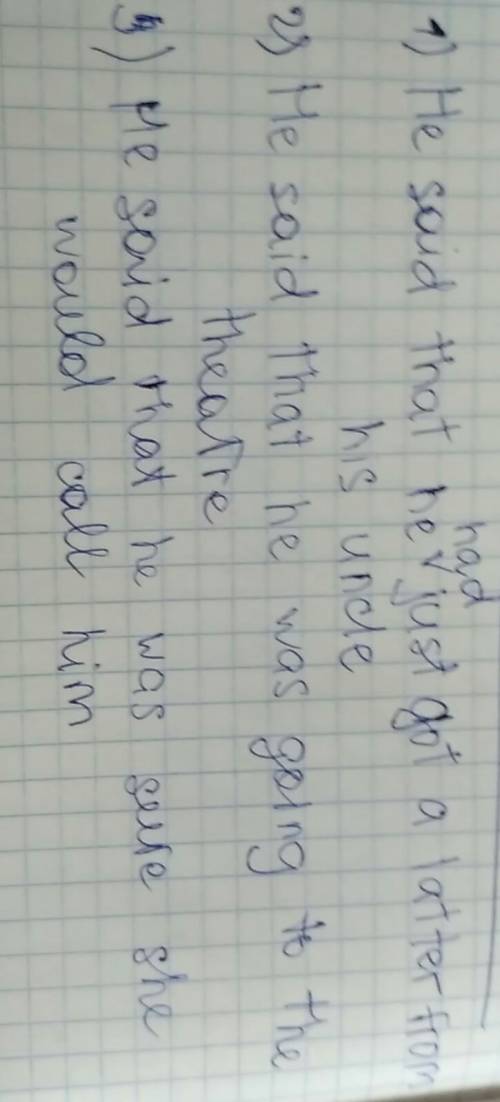 1) He said that he had just got a latter from
his uncle
2) He said that he was going to the
theatre
3) He said that he was sure she
would call him